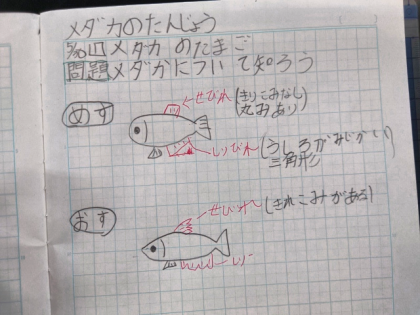 メダカのたんじょう
5/30 四 メダカ のたまご
問題 メダカについて知ろう
めす
せびれ (きりこみなし)
丸みあり
しりびれ (うしろがみじかい)
三角形
おす
せびれ (きれこみがある)
しり